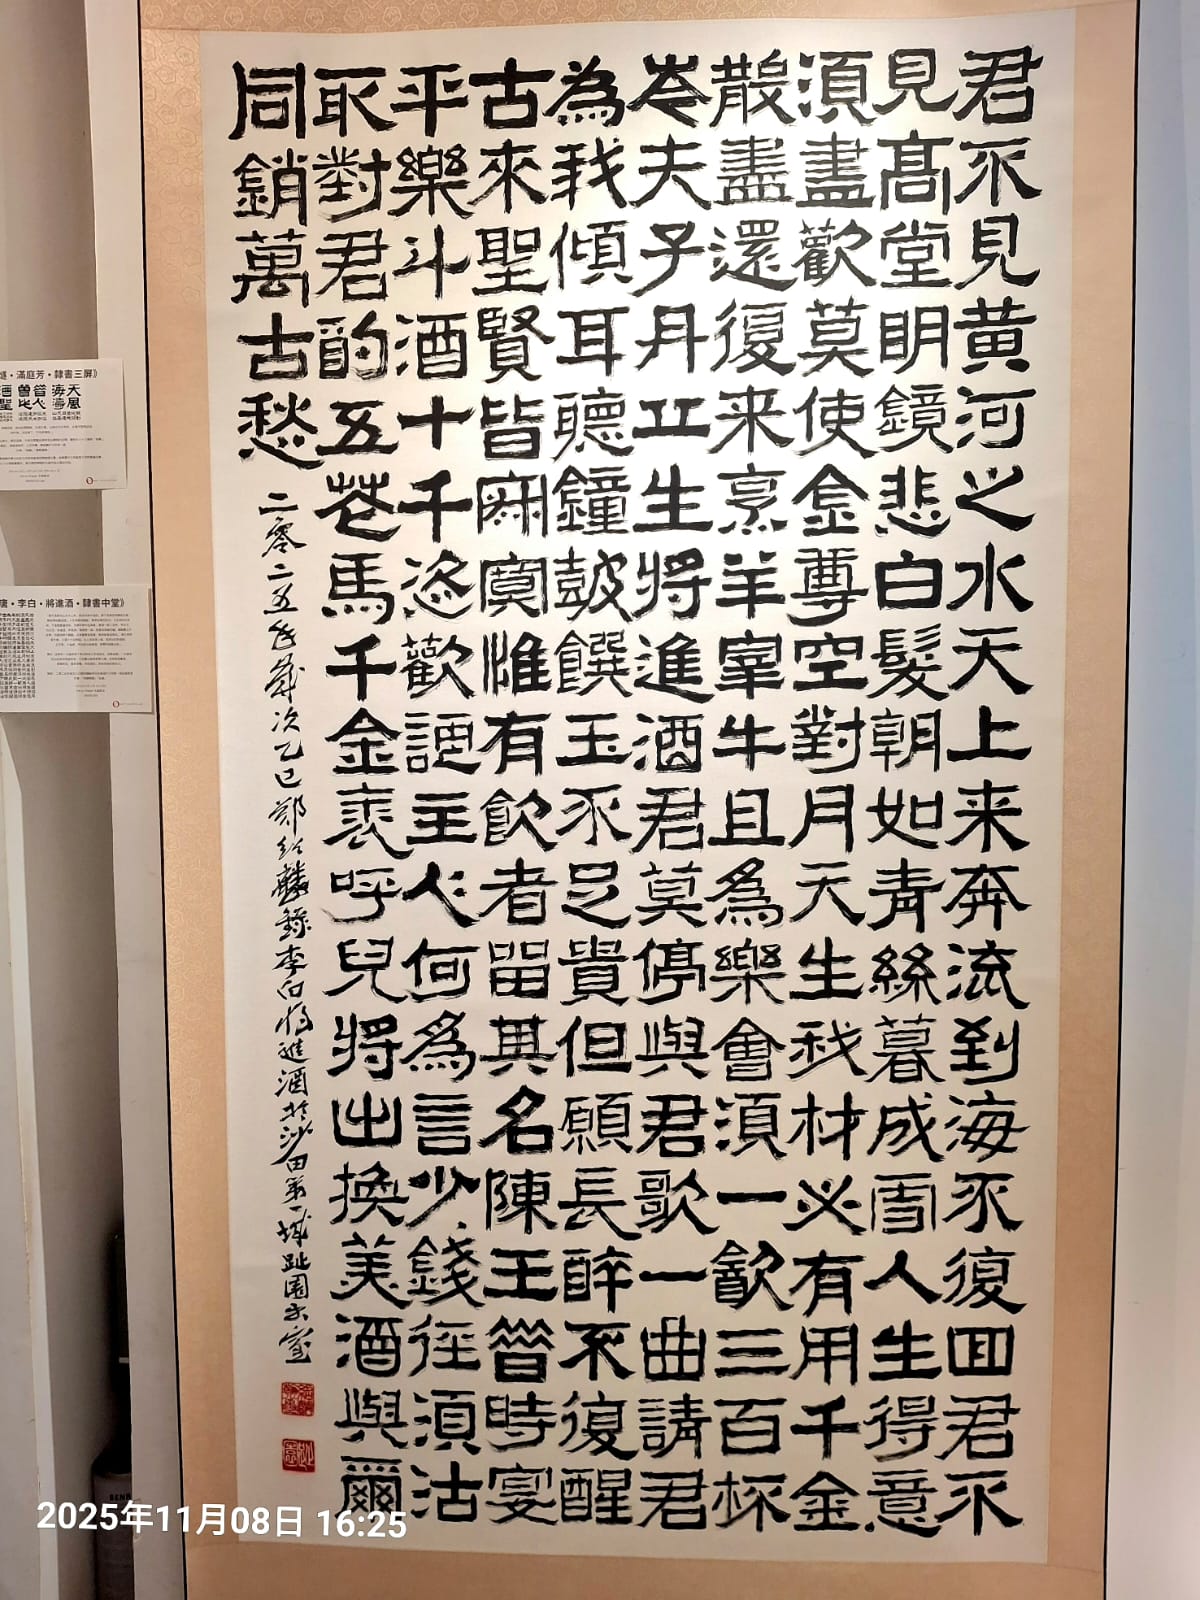 君不見黃河之水天上来奔流到海不復回君不
見高堂明鏡悲白髮朝如青絲暮成雪人生得意
須盡歡莫使金尊空對月天生我材必有用千金
散盡還復来烹羊宰牛且為樂會須一飲三百杯
岑夫子丹丘生將進酒君莫停與君歌一曲請君
為我傾耳聽鐘鼓饌玉不足貴但願長醉不復醒
古來聖賢皆寂寞惟有飲者留其名陳王昔時宴
平樂斗酒十千恣歡謔主人何為言少錢徑須沽
取對君酌五花馬千金裘呼兒將出換美酒與爾
同銷萬古愁
二零二五年歲次乙巳鄭紹麟錄李白將進酒於沙田第一城趾園書室
・滿庭芳・隸書三屏》
唐・李白・將進酒・隸書中堂》
2025年11月08日 16:25